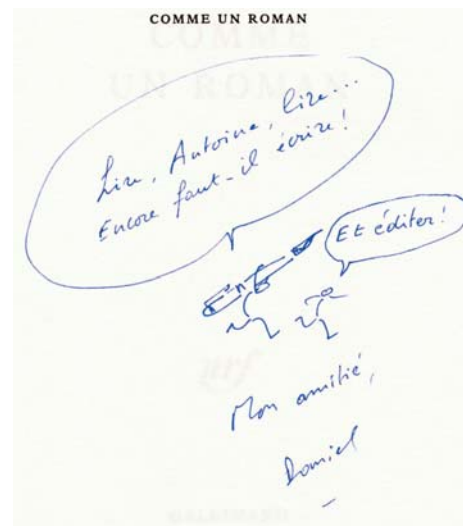 COMME UN ROMAN
COMME
UN ROMAN
Lire, Antoine, lire...
Encore faut-il écrire !
Et éditer !
nrf
Mon amitié,
Daniel
GALLIMARD